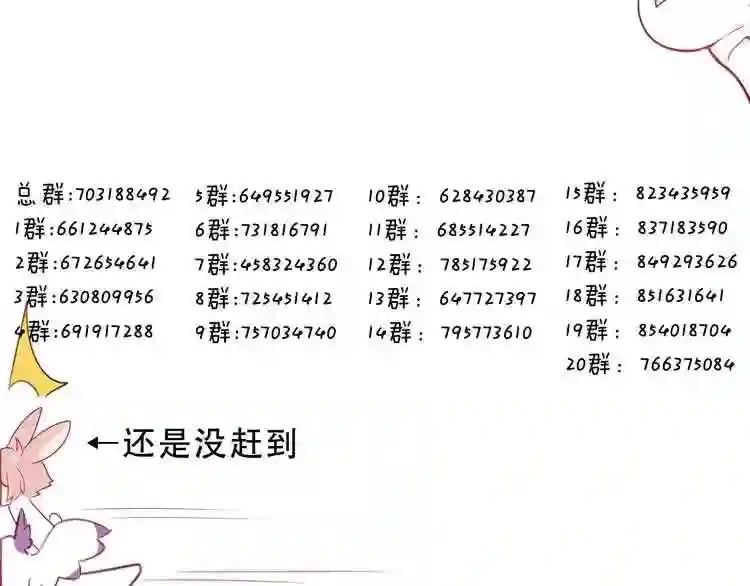 总群:703188492 5群:649551927 10群： 628430387 15群： 823435959
1群:661244875 6群:731816791 11群： 685514227 16群： 837183590
2群:672654641 7群:458324360 12群： 785175922 17群： 849293626
3群:630809956 8群:725451412 13群： 647727397 18群： 851631641
4群:691917288 9群:757034740 14群： 795773610 19群： 854018704
20群： 766375084
←还是没赶到